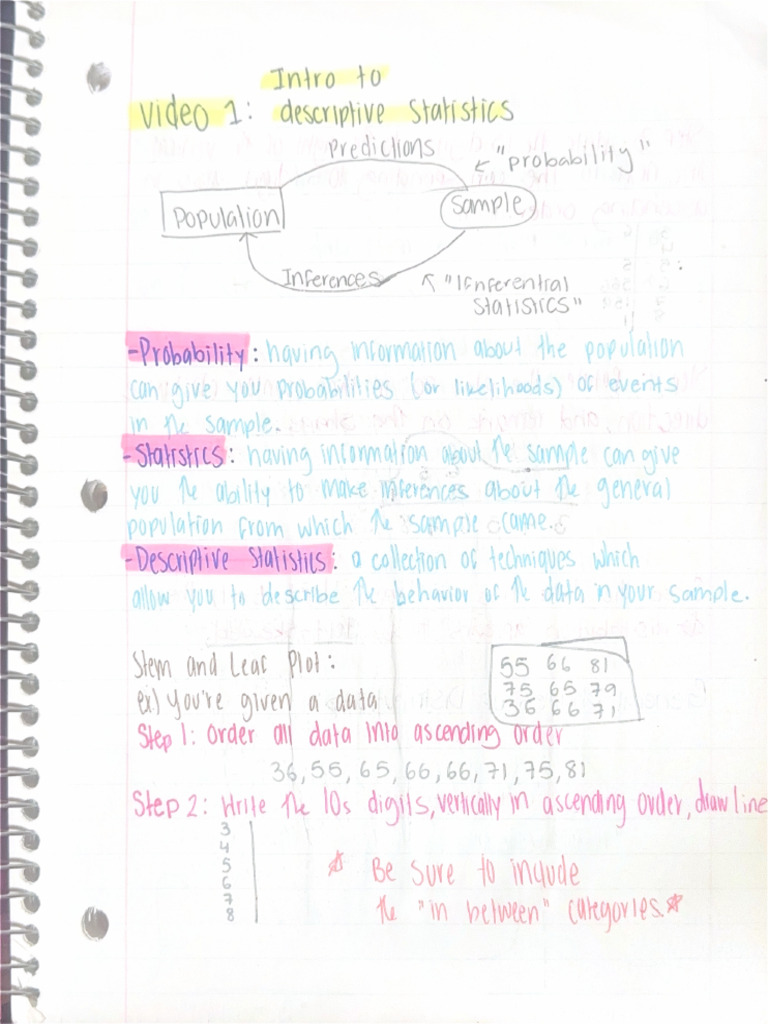 Intro to
Video 1: descriptive Statistics
Predictions
"probability"
Population
Sample
Inferences
"Inferential
STATISTICS"
-Probability: having information about the population
can give you probabilities (or likelihoods) of events
in the sample.
-Statistics: having information about the sample can give
you the ability to make inferences about the general
population from which the sample came.
-Descriptive Statistics: a collection of techniques which
allow you to describe the behavior of the data in your sample.
Stem and Leaf Plot:
ex) You're given a data
55 66 81
75 65 79
36 66 71
Step 1: Order all data into ascending order
36, 55, 65, 66, 66, 71, 75, 81
Step 2: Write the 10s digits, vertically in ascending order, draw line
3
4
5
6
7
8
* Be Sure to include
the "in between" categories.*